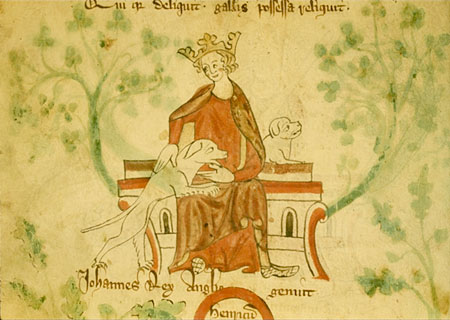 Qui qr deliquit. gallis possessa reliquit.
Johannes Rex Anglie genuit
henricū